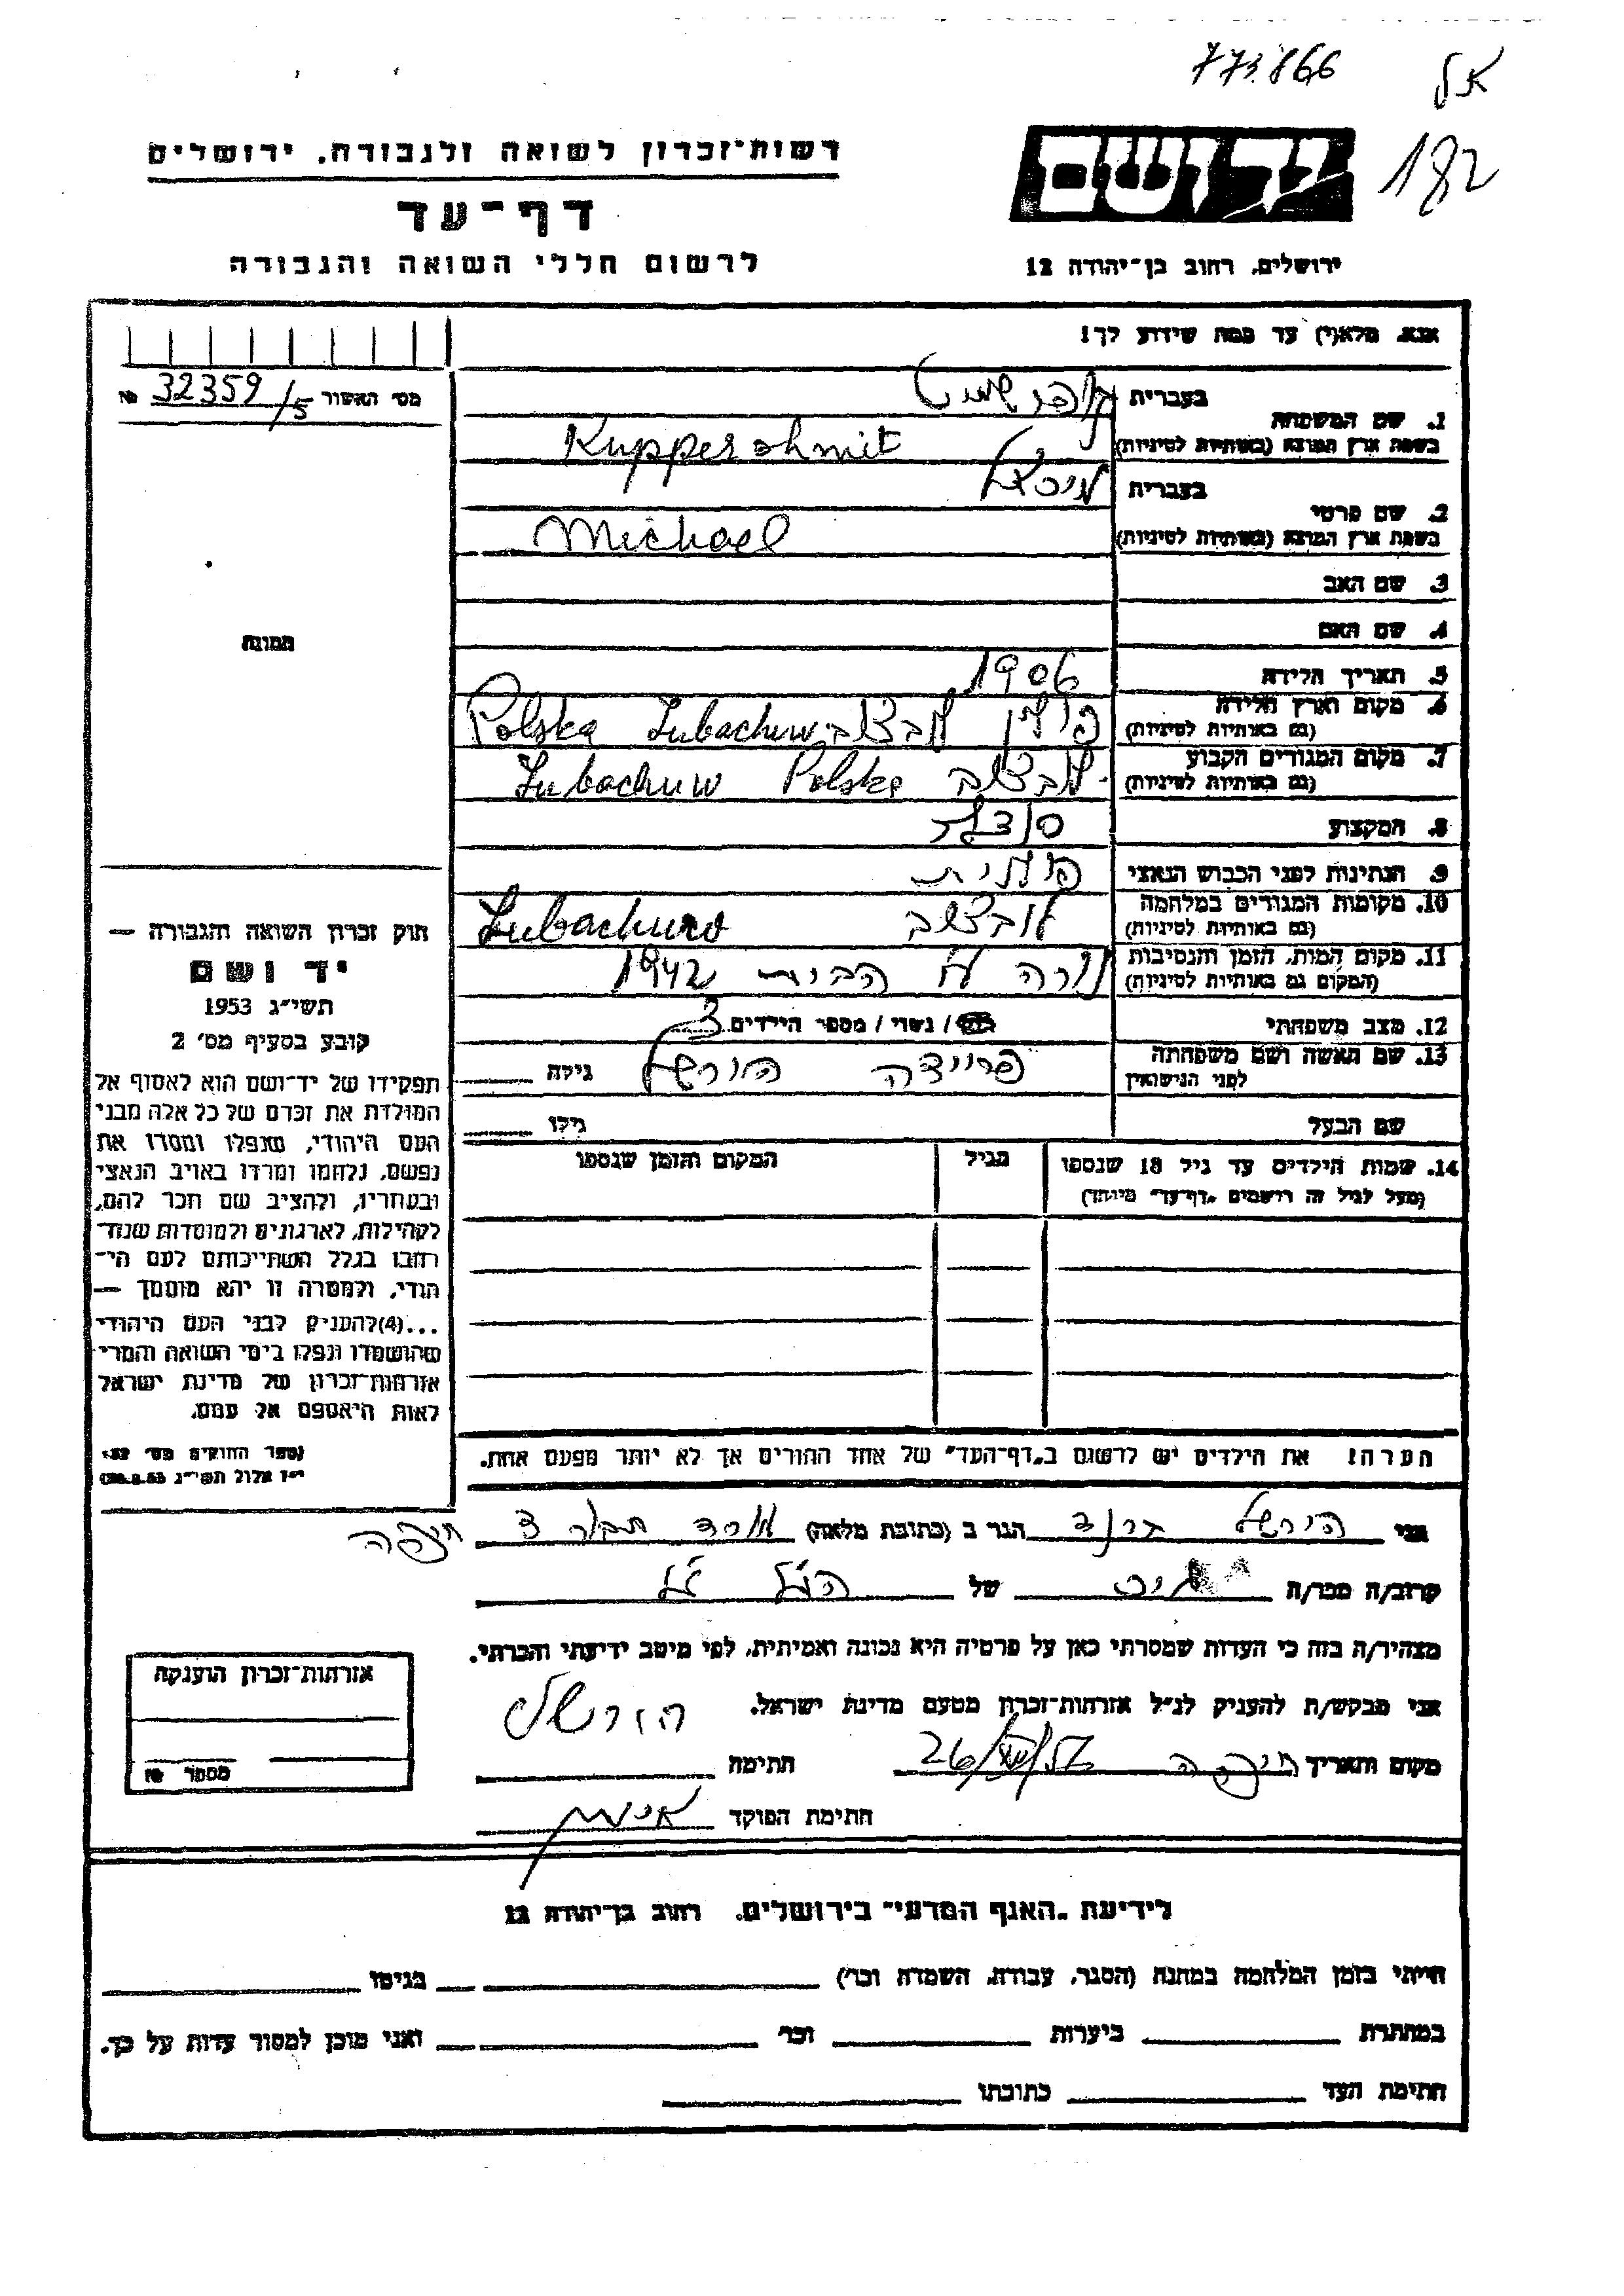 773.866
182
רשות־זכרון לשואה ולגבורה. ירושלים
יד ושם
דף־עד
לרשום חללי השואה והגבורה
ירושלים. רחוב בן־יהודה 12
אנא. מלא(י) עד כמה שידוע לך!
מס׳ האשור 32359/5 №
1. שם המשפחה
בעברית קופרשמיט
בשפת ארץ המוצא (באותיות לטיניות) Kuppershmit
2. שם פרטי
בעברית מיכאל
בשפת ארץ המוצא (באותיות לטיניות) Michael
3. שם האב
4. שם האם
5. תאריך הלידה 1906
6. מקום וארץ הלידה
(גם באותיות לטיניות) פולין לובצ'וב Polska Lubachuw
7. מקום המגורים הקבוע
(גם באותיות לטיניות) לובצ'וב Lubachuw Polska
8. המקצוע
9. הנתינות לפני הכבוש הנאצי פולנית
10. מקומות המגורים במלחמה
(גם באותיות לטיניות) לובצ'וב Lubachuw
11. מקום המות. הזמן והנסיבות
(המקום גם באותיות לטיניות) נורה ע"י הבית 1942
12. מצב משפחתי / נשוי / מספר הילדים 3
13. שם האשה ושם משפחתה
לפני הנישואין פריידה הורשל גילה
שם הבעל גילו
14. שמות הילדים עד גיל 18 שנספו
(מעל לגיל זה רושמים „דף־עד" מיוחד)
הגיל
המקום והזמן שנספו
הערה! את הילדים יש לרשום ב„דף־העד" של אחד ההורים אך לא יותר מפעם אחת.
תמונה
חוק זכרון השואה והגבורה —
יד ושם
תשי״ג 1953
קובע בסעיף מס׳ 2
תפקידו של יד־ושם הוא לאסוף אל
המולדת את זכרם של כל אלה מבני
העם היהודי, שנפלו ומסרו את
נפשם, נלחמו ומרדו באויב הנאצי
ובעוזריו, ולהציב שם וזכר להם,
לקהילות, לארגונים ולמוסדות שנח־
רבו בגלל השתייכותם לעם הי־
הודי, ולמטרה זו יהא מוסמך —
...(4)להעניק לבני העם היהודי
שהושמדו ונפלו בימי השואה והמרי
אזרחות־זכרון של מדינת ישראל
לאות היאספם אל עמם.
(ספר החוקים מס׳ 132
י״ז אלול תשי״ג 28.8.53)
אני הירשל הגר ב (כתובת מלאה) חיפה
קרוב/ה מכר/ה גיס של הנ"ל
מצהיר/ה בזה כי העדות שמסרתי כאן על פרטיה היא נכונה ואמיתית, לפי מיטב ידיעתי והכרתי.
אני מבקש/ת להעניק לנ״ל אזרחות־זכרון מטעם מדינת ישראל.
מקום ותאריך חיפה 26/VIII/57 חתימה הורשל
חתימת הפוקד
אזרחות־זכרון הוענקה
מספר №
לידיעת „האגף המדעי" בירושלים. רחוב בן־יהודה 12
הייתי בזמן המלחמה במחנה (הסגר, עבודה, השמדה וכו׳) בגיטו
במחתרת ביערות וכו׳ ואני מוכן למסור עדות על כך.
חתימת העד כתובתו